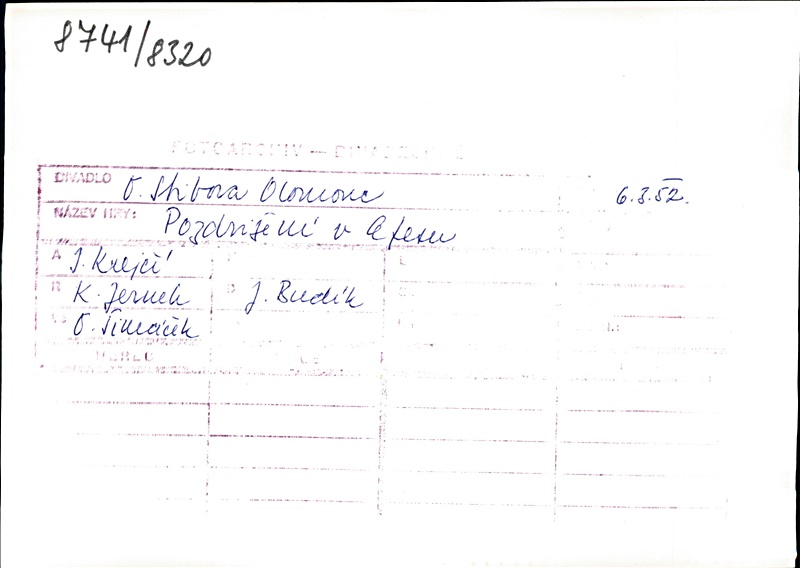 8741/8320
FOTOARCHIV — DIVADELNÍ
DIVADLO O. Stibora Olomouc 6.3.52.
NÁZEV HRY: Pozdvižení v Efesu
A I. Krejčí
R K. Jernek D J. Budík
O. Šimáček
HEREC